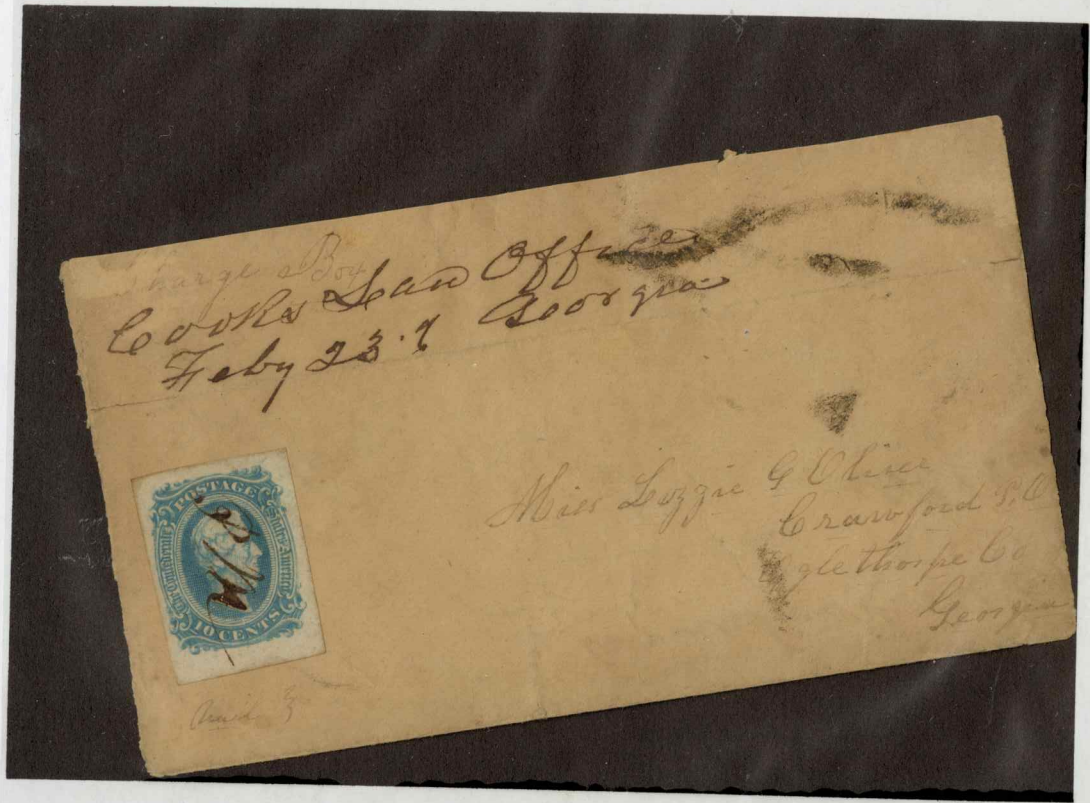 Charge Box
Cooks Law Office
Feby 23. Georgia
POSTAGE
The Confederate States of America
10 CENTS
Miss Lizzie G Olive
Crawford P.O
Oglethorpe Co
Georgia